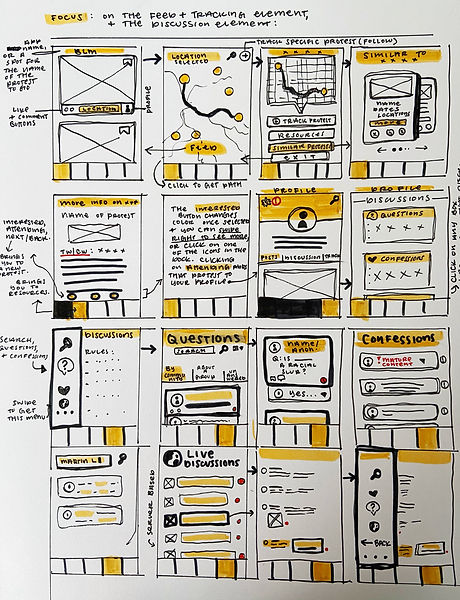 FOCUS: on THE FEED + TRACKING ELEMENT,
+ THE DISCUSSION ELEMENT:
NAME,
OR A
SPOT FOR
THE NAME
OF THE
PROTEST
TO GO
LIKE
+ COMMENT
BUTTONS
BLM
LOCATION
PROFILE
LOCATION
SELECTED
FEED
CLICK TO GET PATH
TRACK SPECIFIC PROTEST (FOLLOW)
X X X X
TRACK PROTEST
RESOURCES
SIMILAR PROTESTS
EXIT
SIMILAR TO
X X X X
NAME
DATES
LOCATIONS
MORE
INTERESTED,
ATTENDING,
NEXT/BACK.
BRINGS
YOU TO
A NEW
PROTEST.
BRINGS
YOU TO
RESOURCES.
more INFO ON
NAME OF PROTEST
TW/CW: X X X X
THE INTERESTED
BUTTON CHANGES
COLOR ONCE SELECTED
+ YOU CAN SWIPE
RIGHT TO SEE MORE,
OR CLICK ON ONE
OF THE ICONS IN
THE DOCK. CLICKING
ON ATTENDING ADDS
THAT PROTEST TO
YOUR PROFILE.
PROFILE
POSTS DISCUSSION
PROFILE
DISCUSSIONS
2 QUESTIONS
X X X X
CONFESSIONS
X X X X
CLICK ON ANY BOX
SEARCH,
QUESTIONS
+ CONFESSIONS
SWIPE
TO GET
THIS MENU
DISCUSSIONS
RULES:
QUESTIONS
SEARCH
BY
COMMUNITY
ABOUT
A
GROUP
NAME/
ANON.
Q: IS
A RACIAL
SLUR?
YES...
CONFESSIONS
MATURE
CONTENT
MARTIN L
SERVER BASED
LIVE
DISCUSSIONS
BACK